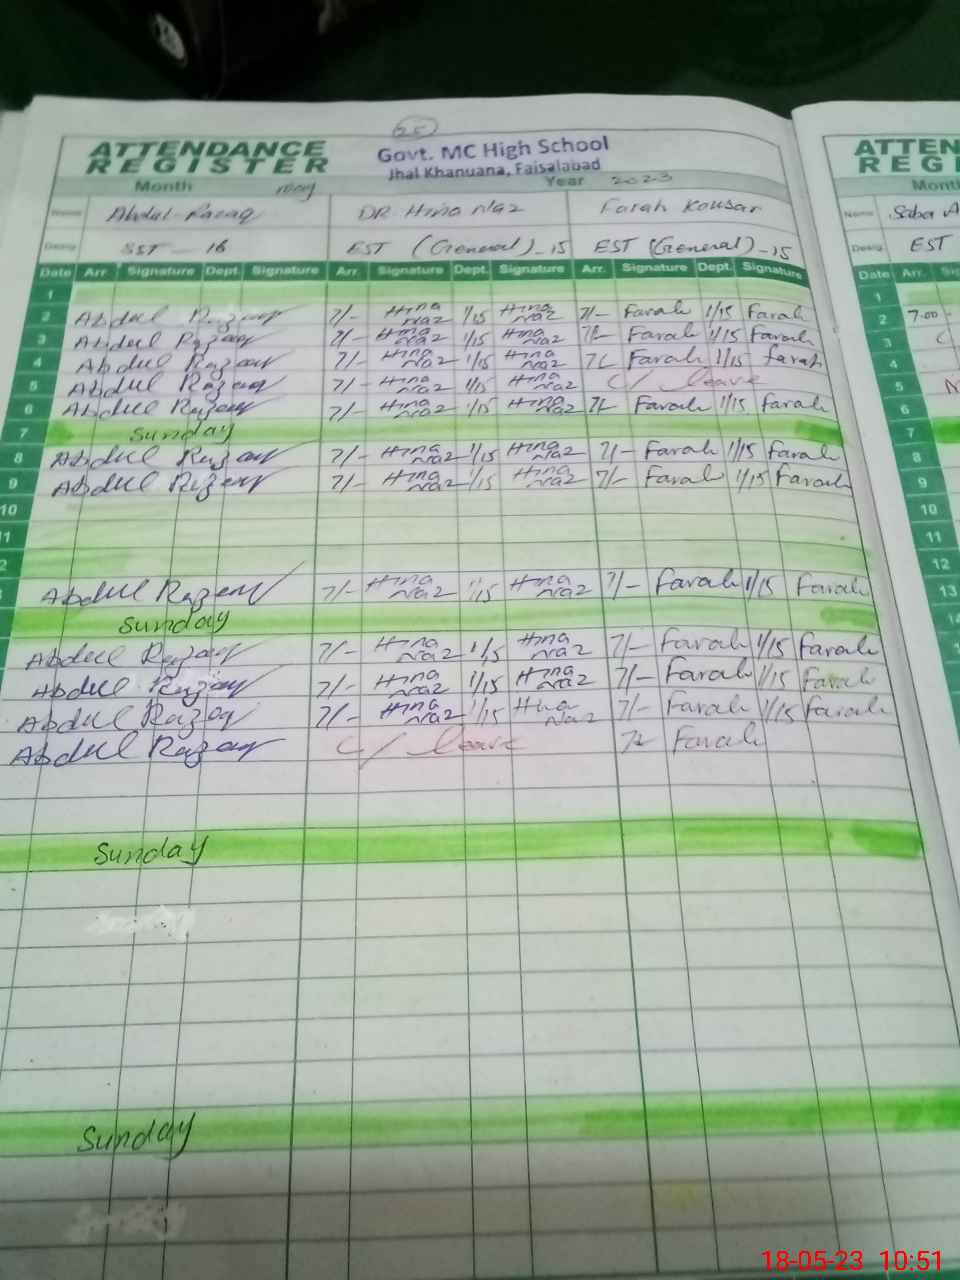 25
ATTENDANCE REGISTER Govt. MC High School
Jhal Khanuana, Faisalabad
Month may Year 2023
Name Abdul Razaq DR. Hina Naz Farah Kousar
Desig SST - 16 EST (General)-15 EST (General)-15
Date Arr. Signature Dept. Signature Arr. Signature Dept. Signature Arr. Signature Dept. Signature
1
2 Abdul Razaq 7/- Hina Naz 1/15 Hina Naz 7/- Farah 1/15 Farah
3 Abdul Razaq 7/- Hina Naz 1/15 Hina Naz 7/- Farah 1/15 Farah
4 Abdul Razaq 7/- Hina Naz 1/15 Hina Naz 7/- Farah 1/15 Farah
5 Abdul Razaq 7/- Hina Naz 1/15 Hina Naz C/ leave
6 Abdul Razaq 7/- Hina Naz 1/15 Hina Naz 7/- Farah 1/15 Farah
7 Sunday
8 Abdul Razaq 7/- Hina Naz 1/15 Hina Naz 7/- Farah 1/15 Farah
9 Abdul Razaq 7/- Hina Naz 1/15 Hina Naz 7/- Farah 1/15 Farah
10
11
2
Abdul Razaq 7/- Hina Naz 1/15 Hina Naz 7/- Farah 1/15 Farah
Sunday
Abdul Razaq 7/- Hina Naz 1/15 Hina Naz 7/- Farah 1/15 Farah
Abdul Razaq 7/- Hina Naz 1/15 Hina Naz 7/- Farah 1/15 Farah
Abdul Razaq 7/- Hina Naz 1/15 Hina Naz 7/- Farah 1/15 Farah
Abdul Razaq C/ leave 7/- Farah
Sunday
Sunday
ATTEN
REGI
Month
Name Saba A
Desig EST
Date Arr. Si
1
2 7:00
3
4
5
6
7
8
9
10
11
12
13
18-05-23 10:51